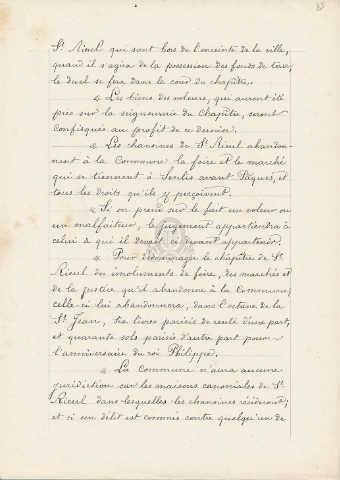 St Rieul qui sont hors de l'enceinte de la ville,
quand il s'agira de la possession des fonds de terre,
le duel se fera dans la cour du chapitre.
« Les biens des voleurs, qui auront été
pris sur la seigneurie du Chapitre, seront
confisqués au profit de ce dernier.
« Les chanoines de St Rieul abandon-
nent à la Commune la foire et le marché
qui se tiennent à Senlis avant Pâques, et
tous les droits qu'ils y perçoivent.
« Si on prend sur le fait un voleur ou
un malfaiteur, le jugement appartiendra à
celui à qui il devait ci devant appartenir.
« Pour dédommager le chapitre de St
Rieul des émoluments de foire, des marchés et
de la justice qu'il abandonne à la Commune,
celle-ci lui abandonnera, dans l'octave de la
St Jean, six livres parisis de rente d'une part,
et quarante sols parisis d'autre part pour
l'anniversaire du roi Philippe.
« La Commune n'aura aucune
juridiction sur les maisons canoniales de St
Rieul dans lesquelles les chanoines résideront;
et si un délit est commis contre quelqu'un de